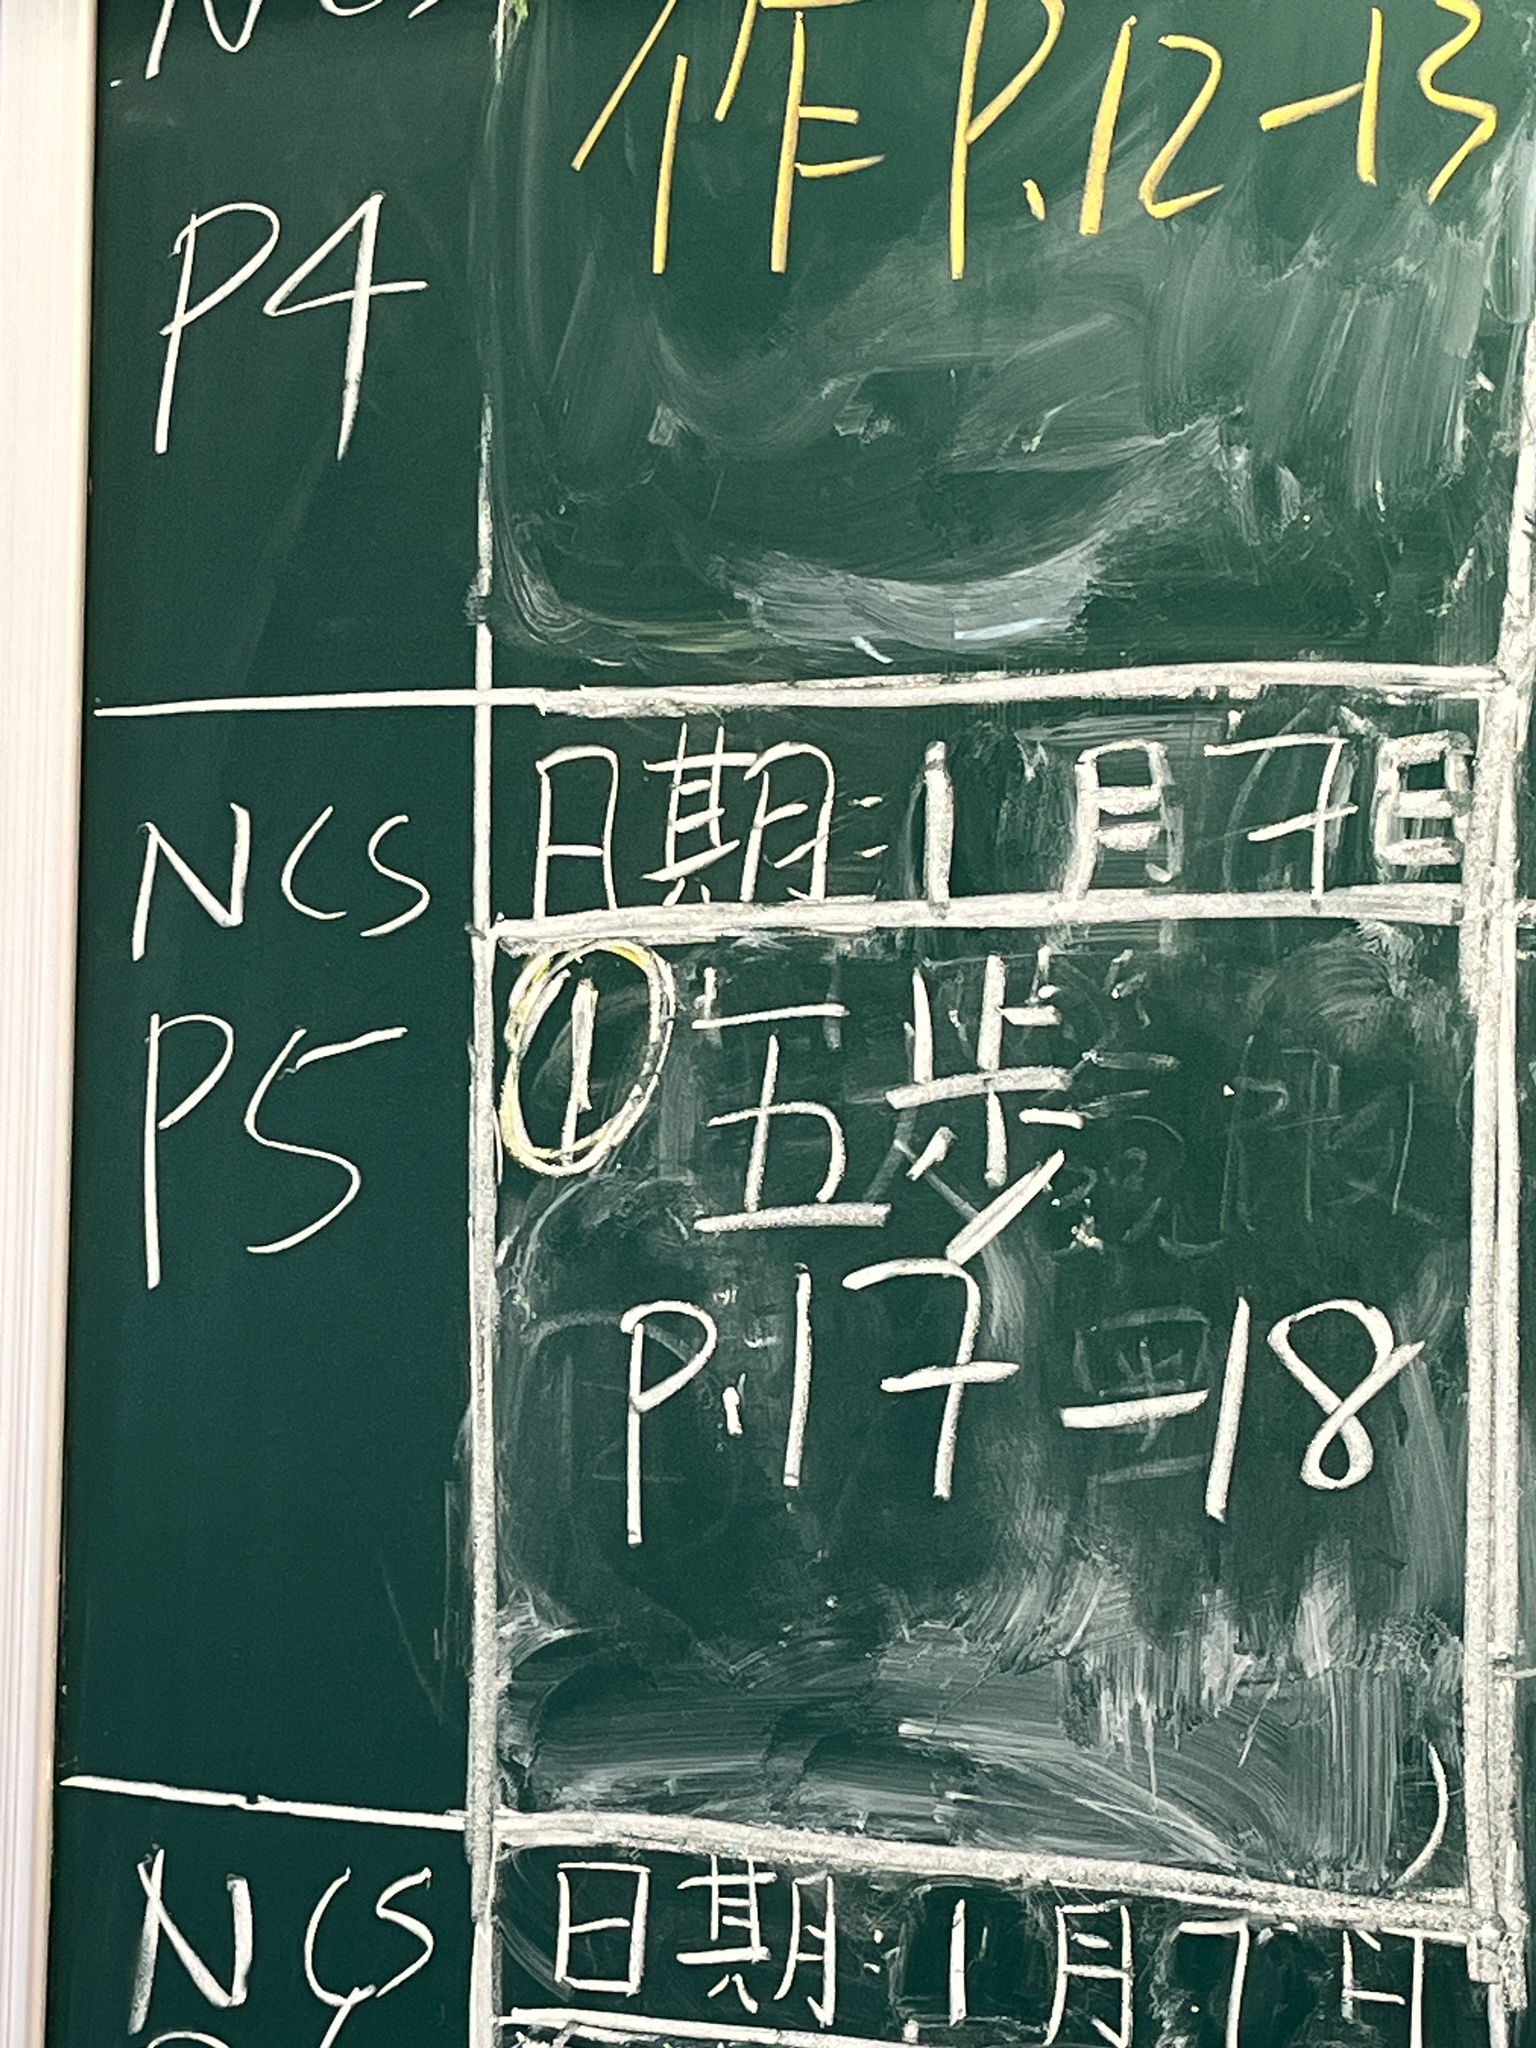 NCS
作 P.12-13
P4
NCS
日期：1月7日
P5
① 五步
P.17-18
NCS
日期：1月7日